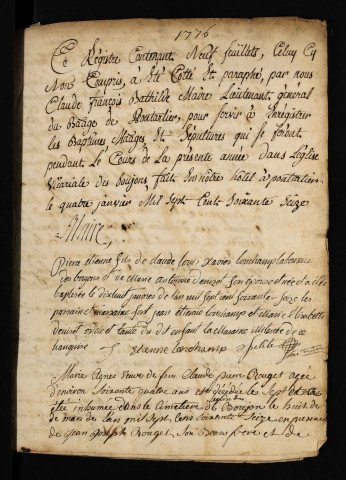 1776
Ce Registre Contenant Neuf feüillets, Celuy Cy
Non Compris, à été Cotté et paraphé, par nous
Claude François Bathilde Maire Lieutenant general
du Baage de Pontarlier, pour servir à Enregistrer
les Baptêmes, Mâages Et Sépultures qui se feront
pendant Le Cours de La présente année Dans L'église
Vicariale des boujons, fait En nôtre hôtel à pontarlier
le quatre janvier Mil Sept Cent Soixante Seize
Maire
Pierre étienne fils de claude louis Xavier lonchamp laboureur
des boujons et de Marie antoinne son epouse est né et a été
baptisé le dix huit janvier de lan mil sept cens soixante seize les
parrain et marraine sont jean étienne lonchamp et Marie
oncle et tante du dit enfant la Maraine illiterée de ce
enquise
étienne lonchamp
Marie Agnes veuve de feu Claude pierre Rouget agée
d'environ soixante quatre ans est décédée le sept et a
été inhumée dans le Cimetiere de Boujon le huit de
de mars de lan mil sept cens soixante Seize en presence
de jean joseph Rouget, son Beau frere et de